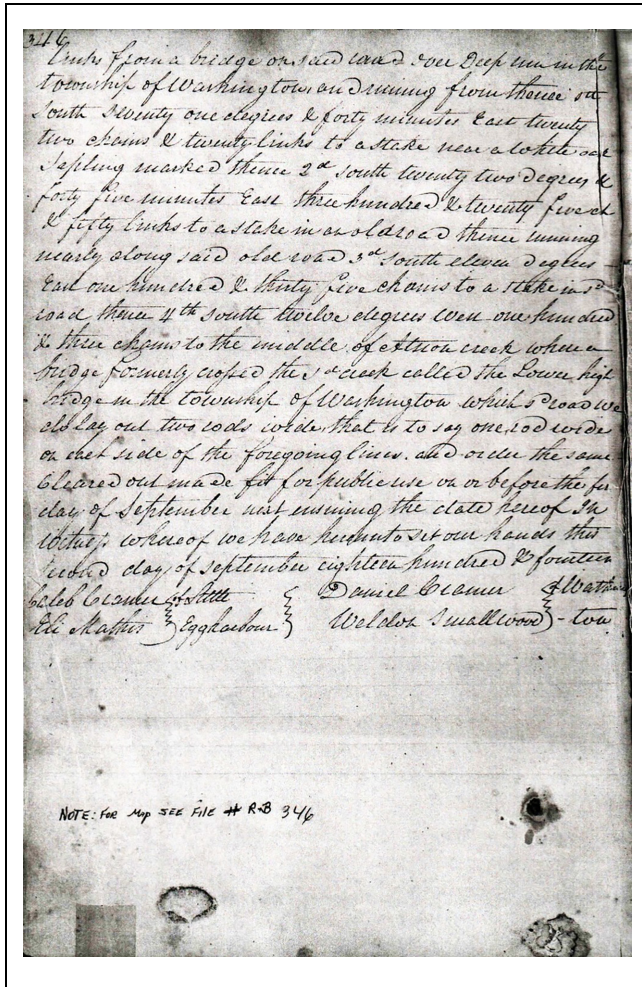 346
links from a bridge on said road over Deep run in the
township of Washington and runing from thence
South Seventy one degrees & forty minutes East twenty
two chains & twenty links to a stake near a white oak
Sapling marked thence 2d south twenty two degrees &
forty five minutes East three hundred & twenty five ch
& fifty links to a stake in an old road thence runing
nearly along said old road 3d South eleven degrees
East one hundred & thirty five chains to a stake in sd
road thence 4th south twelve degrees West one hundred
& three chains to the middle of Atsion creek where a
bridge formerly crossed the sd creek called the Lower high
bridge in the township of Washington which sd road we
do lay out two rods wide that is to say one rod wide
on each side of the foregoing lines. and order the same
Cleared out made fit for public use on or before the
day of September next ensuing the date hereof In
Witness whereof we have hereunto set our hands this
second day of september eighteen hundred & fourteen
Caleb Cramer of Little Daniel Cramer of Wash
Eli Mathis Eggharbour Weldon Smallwood - ton
NOTE: FOR Map SEE FILE # R-B 346